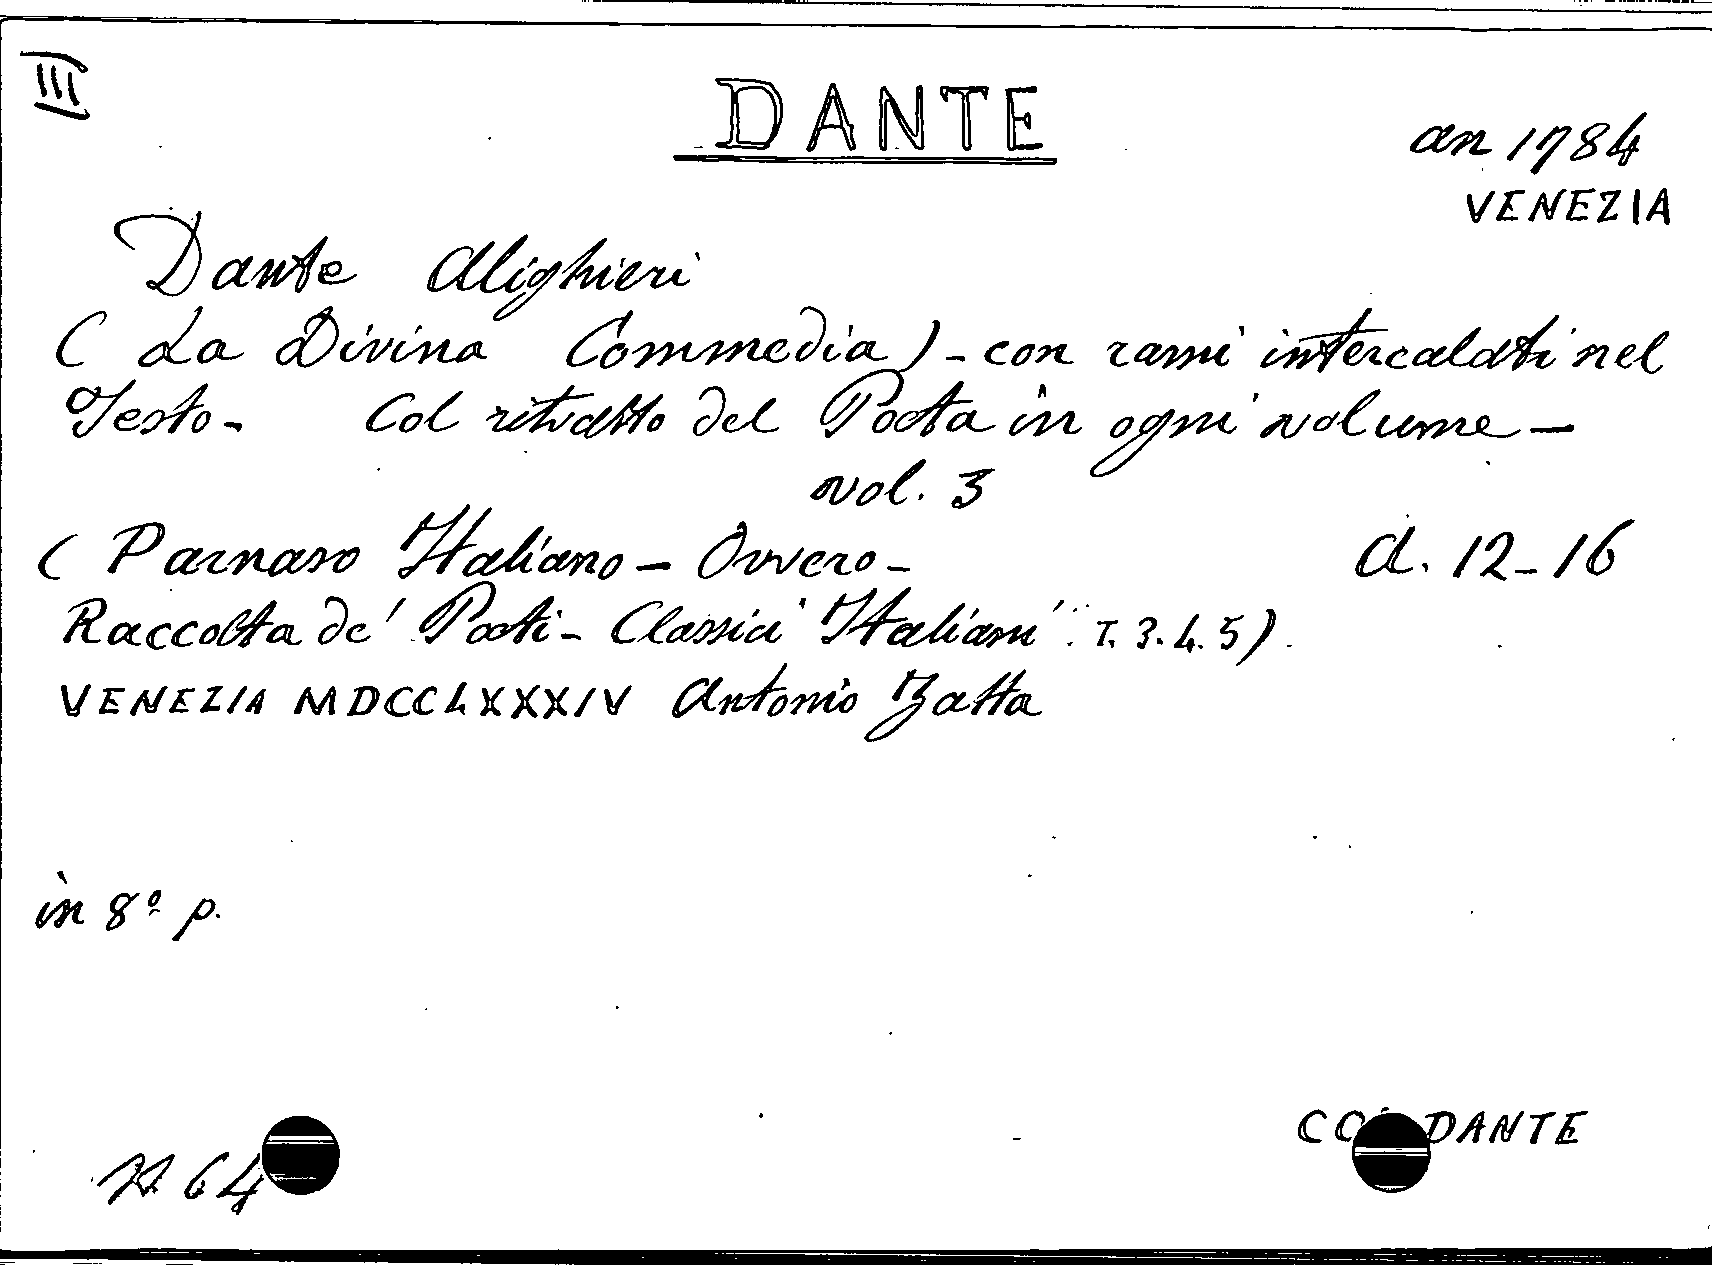 III
DANTE
an 1784
VENEZIA
Dante Alighieri
( La Divina Commedia ) - con rami intercalati nel
Testo - Col ritratto del Poeta in ogni volume -
vol. 3
( Parnaso Italiano - Ovvero -
d. 12-16
Raccolta de' Poeti - Classici Italiani T. 3. 4. 5).
VENEZIA MDCCLXXXIV Antonio Zatta
in 8º p.
64
DANTE